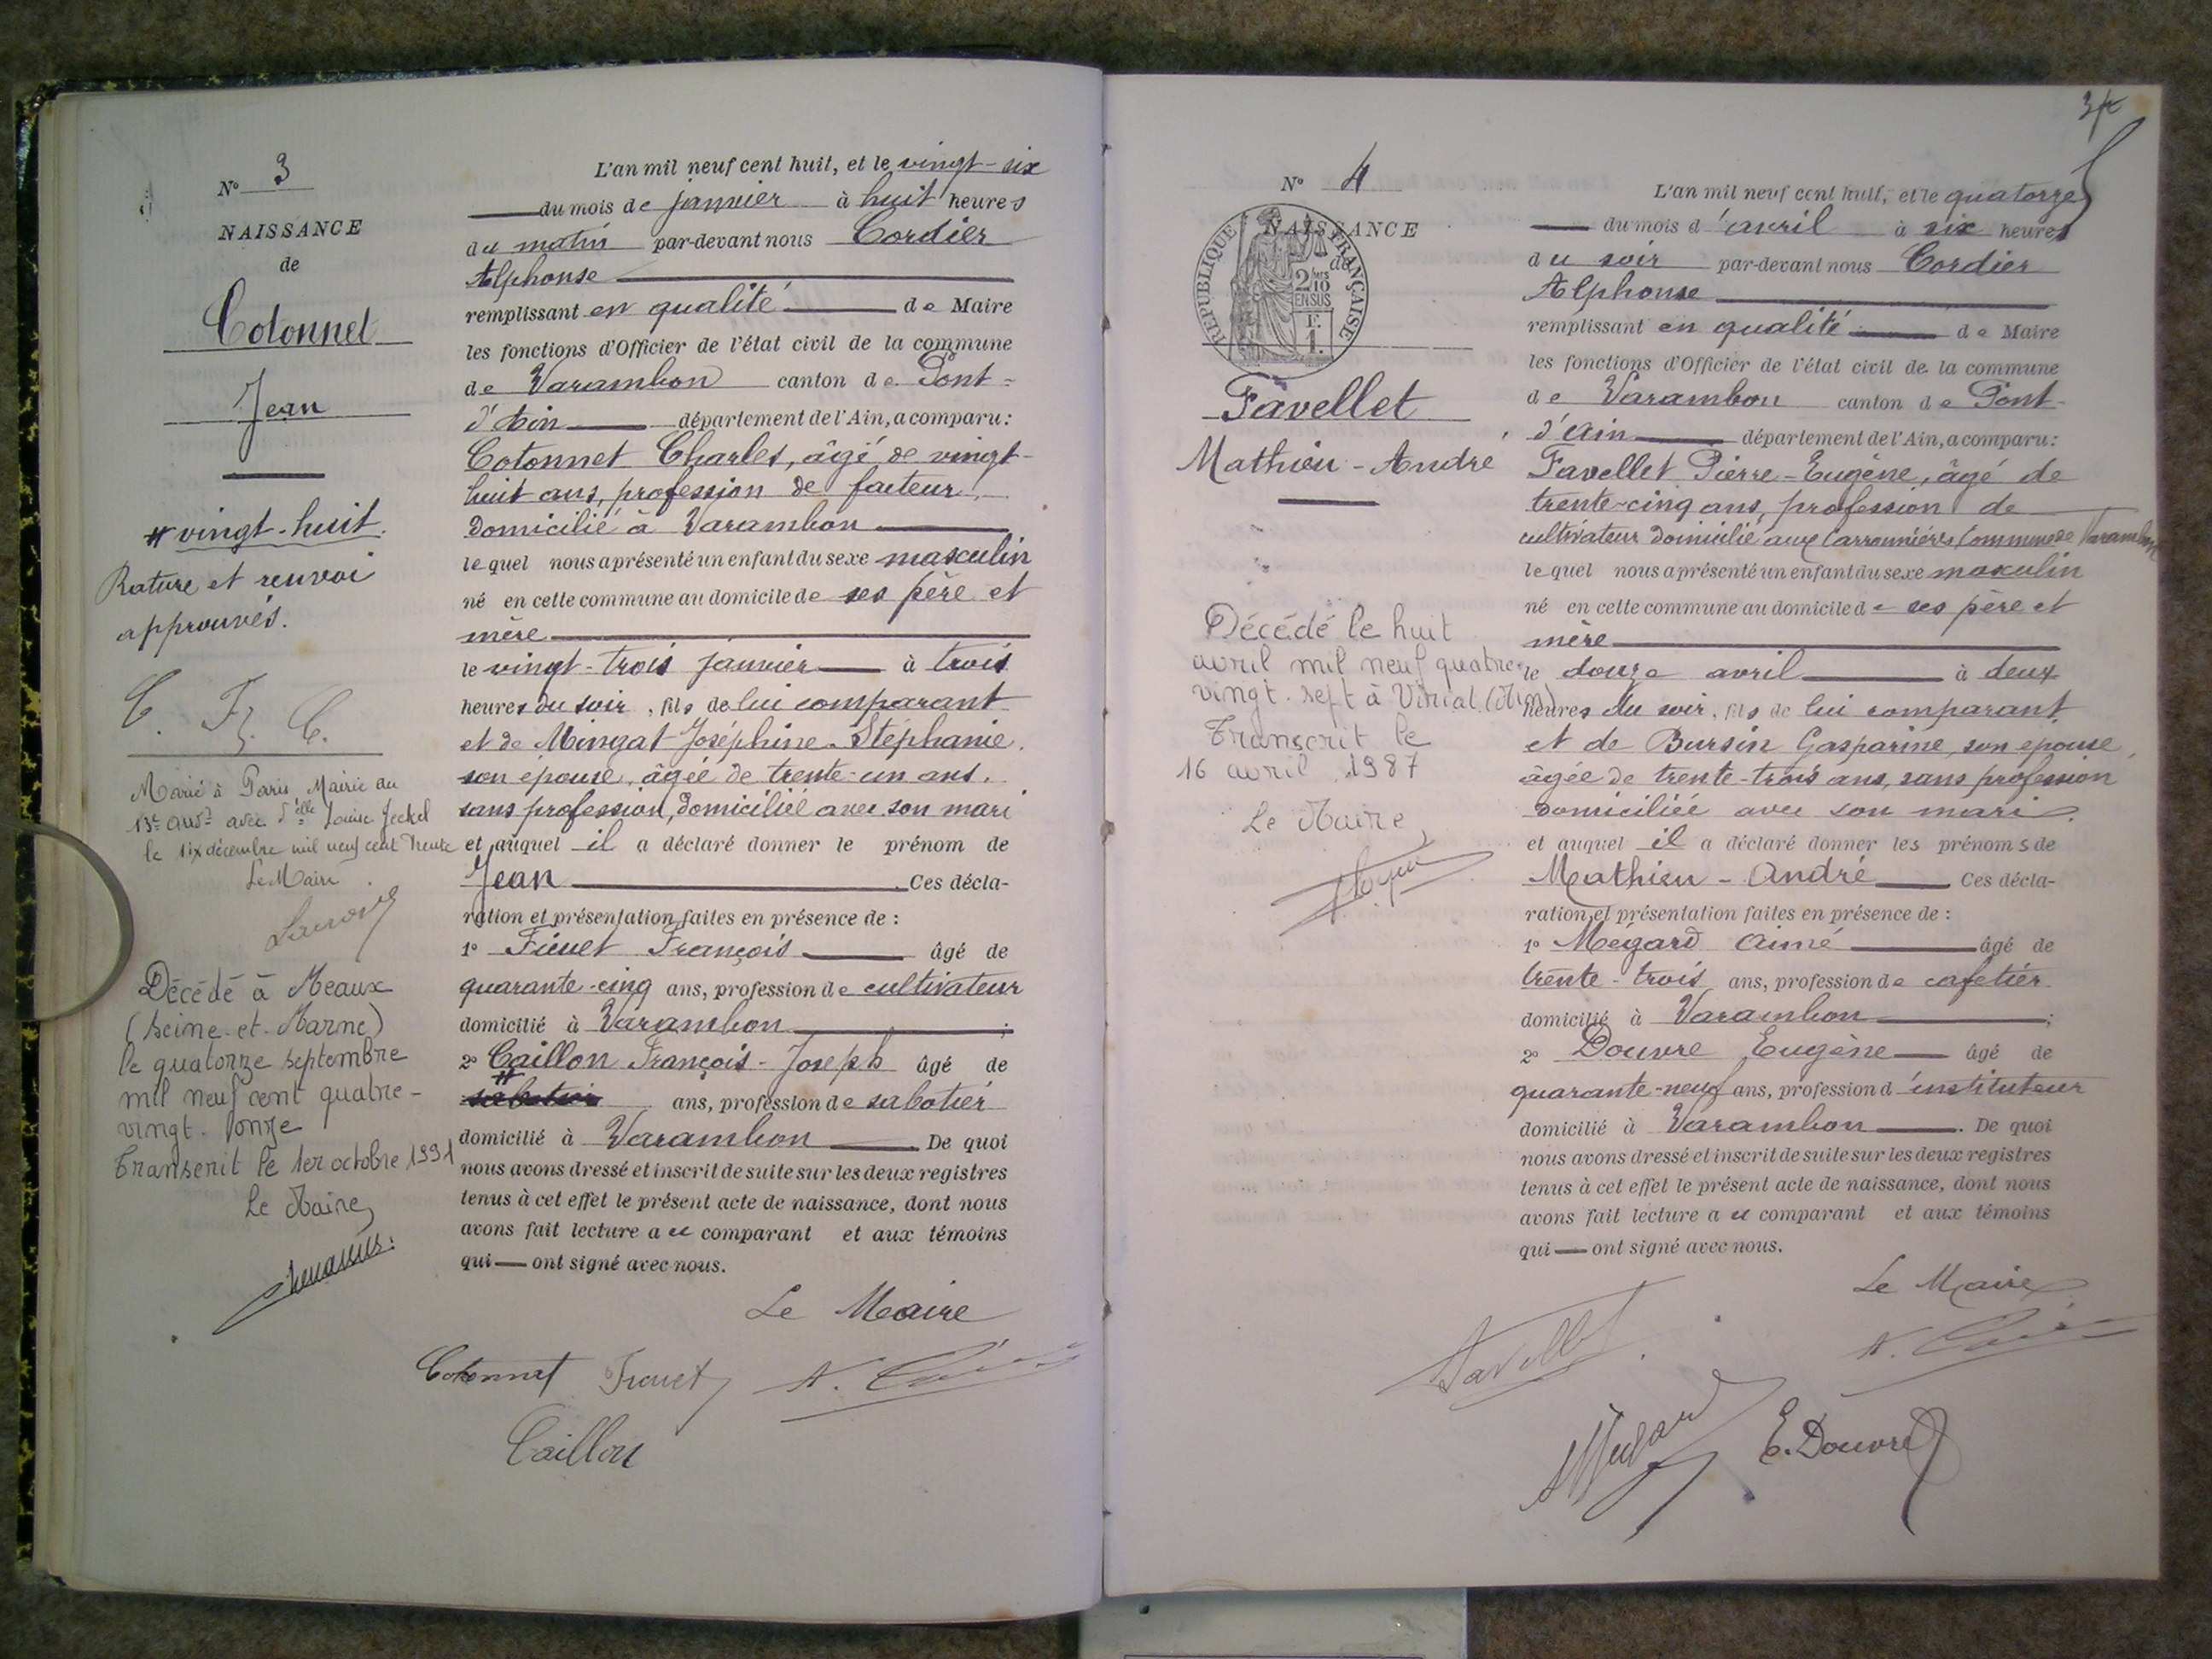 Nº 3
NAISSANCE
de
Cotonnet
Jean
# vingt-huit.
Rature et renvoi
approuvés.
C. F. C.
Marié à Paris, Mairie du
13e avec Louise Jeckel
le six décembre mil neuf cent trente
Le Maire
Décédé à Meaux
(Seine-et-Marne)
le quatorze septembre
mil neuf cent quatre-
vingt-onze
Transcrit le 1er octobre 1991
Le Maire,
L'an mil neuf cent huit, et le vingt-six
du mois de janvier à huit heures
du matin par-devant nous Cordier
Alphonse
remplissant en qualité de Maire
les fonctions d'Officier de l'état civil de la commune
de Varambon canton de Pont-
d'Ain département de l'Ain, a comparu:
Cotonnet Charles, âgé de vingt-
huit ans, profession de facteur,
domicilié à Varambon
lequel nous a présenté un enfant du sexe masculin
né en cette commune au domicile de ses père et
mère
le vingt-trois janvier à trois
heures du soir, fils de lui comparant
et de Mingat Joséphine-Stéphanie,
son épouse, âgée de trente-un ans,
sans profession, domiciliée avec son mari
et auquel il a déclaré donner le prénom de
Jean Ces décla-
ration et présentation faites en présence de :
1º François âgé de
quarante-cinq ans, profession de cultivateur
domicilié à Varambon ;
2º Caillon François-Joseph âgé de
# sabotier ans, profession de sabotier
domicilié à Varambon De quoi
nous avons dressé et inscrit de suite sur les deux registres
tenus à cet effet le présent acte de naissance, dont nous
avons fait lecture au comparant et aux témoins
qui ont signé avec nous.
Le Maire
Cotonnet
Caillon
Nº 4
NAISSANCE
de
RÉPUBLIQUE FRANÇAISE
2/10
EN SUS
F.
1.
Favellet
Mathieu-André
Décédé le huit
avril mil neuf quatre-
vingt-sept à Viriat (Ain)
Transcrit le
16 avril 1987
Le Maire,
L'an mil neuf cent huit, et le quatorze
du mois d'avril à six heures
du soir par-devant nous Cordier
Alphonse
remplissant en qualité de Maire
les fonctions d'Officier de l'état civil de la commune
de Varambon canton de Pont-
d'Ain département de l'Ain, a comparu:
Favellet Pierre-Eugène, âgé de
trente-cinq ans, profession de
cultivateur domicilié aux Carronnières commune de Varambon
lequel nous a présenté un enfant du sexe masculin
né en cette commune au domicile de ses père et
mère
le douze avril à deux
heures du soir, fils de lui comparant
et de Bursin Gasparine, son épouse,
âgée de trente-trois ans, sans profession
domiciliée avec son mari.
et auquel il a déclaré donner les prénoms de
Mathieu-André Ces décla-
ration et présentation faites en présence de :
1º Mégard Aimé âgé de
trente-trois ans, profession de cafetier
domicilié à Varambon ;
2º Douvre Eugène âgé de
quarante-neuf ans, profession d'instituteur
domicilié à Varambon. De quoi
nous avons dressé et inscrit de suite sur les deux registres
tenus à cet effet le présent acte de naissance, dont nous
avons fait lecture au comparant et aux témoins
qui ont signé avec nous.
Le Maire
Favellet
E. Douvre